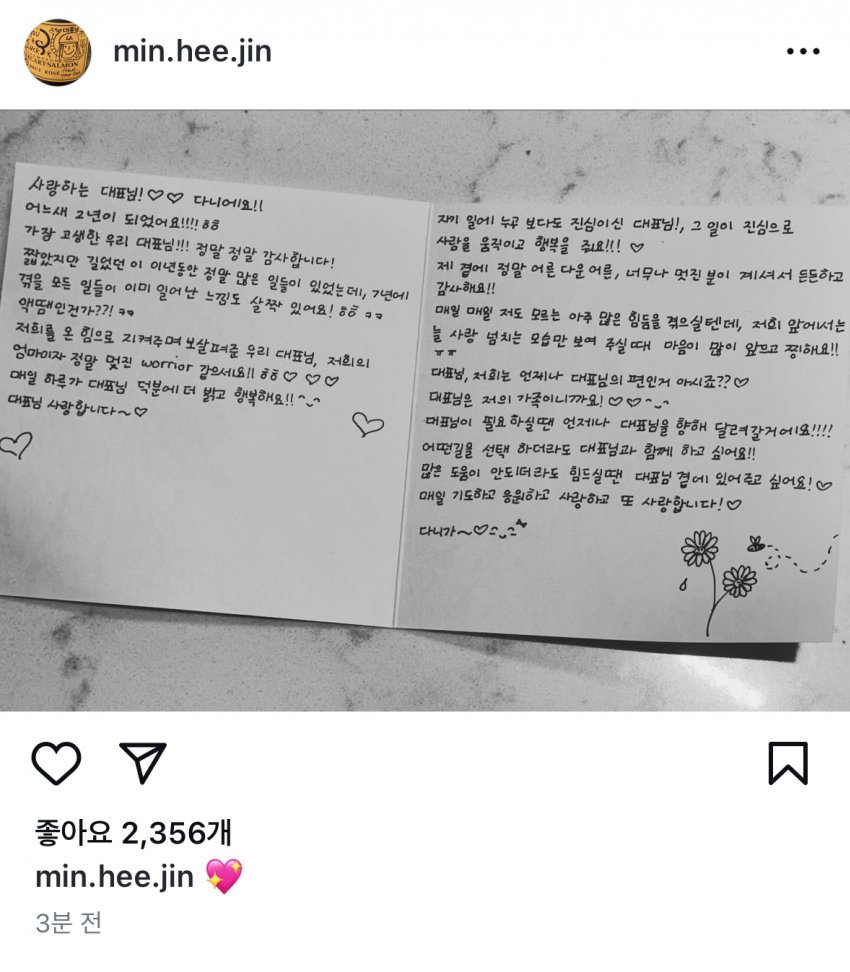 min.hee.jin
사랑하는 대표님!♡♡ 다니에요!!
어느새 2년이 되었어요!!!! ㅎㅎ
가장 고생한 우리 대표님!!! 정말 정말 감사합니다!
짧았지만 길었던 이 이년동안 정말 많은 일들이 있었는데, 7년에
겪을 모든 일들이 이미 일어난 느낌도 살짝 있어요! ㅎㅎ ㅋㅋ
액땜인건가??! ㅋㅋ
저희를 온 힘으로 지켜주며 보살펴준 우리 대표님, 저희의
엄마이자 정말 멋진 worrior 같으세요!! ㅎㅎ♡ ♡♡
매일 하루가 대표님 덕분에 더 밝고 행복해요!! ^_^
대표님 사랑합니다~♡
자기 일에 누구 보다도 진심이신 대표님!, 그 일이 진심으로
사람을 움직이고 행복을 줘요!!! ♡
제 곁에 정말 어른 다운 어른, 너무나 멋진 분이 계셔서 든든하고
감사해요!!
매일 매일 저도 모르는 아주 많은 힘듦을 겪으실텐데, 저희 앞에서는
늘 사랑 넘치는 모습만 보여 주실 때 마음이 많이 앞으고 찡해요!!
ㅠㅠ
대표님, 저희는 언제나 대표님의 편인거 아시죠??♡
대표님은 저의 가족이니까요! ♡♡ ^_^
대표님이 필요하실땐 언제나 대표님을 향해 달려갈거에요!!!!
어떤길을 선택 하더라도 대표님과 함께 하고 싶어요!!
많은 도움이 안되더라도 힘드실땐 대표님 곁에 있어주고 싶어요!♡
매일 기도하고 응원하고 사랑하고 또 사랑합니다!♡
다니가~♡
좋아요 2,356개
min.hee.jin 💖
3분 전